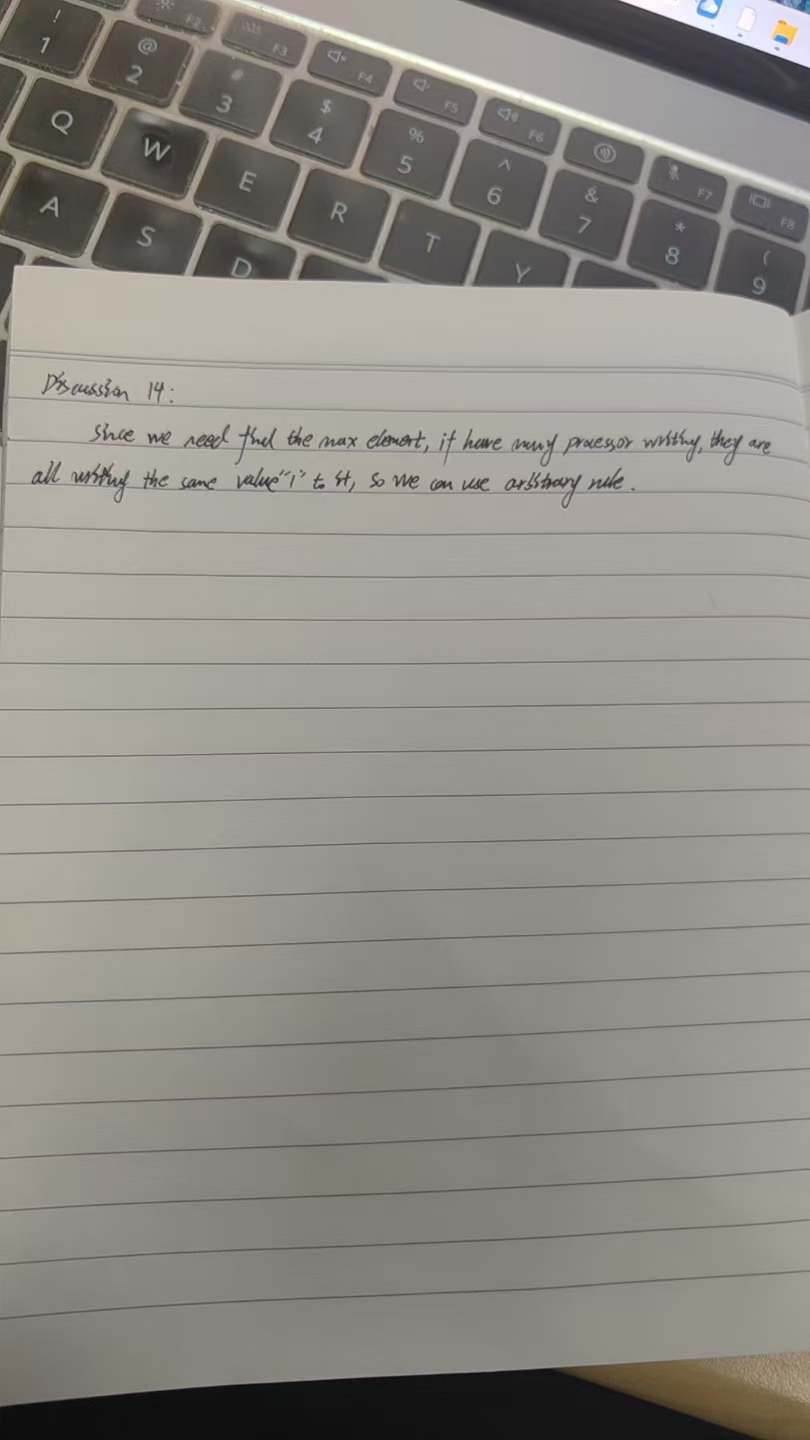 ! 1
@ 2
# 3
$ 4
% 5
^ 6
& 7
* 8
( 9
F2
F3
F4
F5
F6
F7
F8
Q W E R T Y
A S D
Discussion 14:
Since we need find the max element, if have many processor writing, they are
all writing the same value "1" to it, so we can use arbitrary rule.